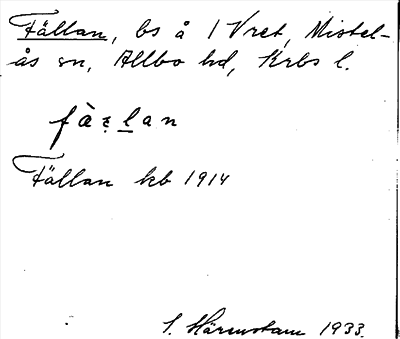 Fällan, bs å 1 Vret, Mistel-
ås sn, Allbo hd, Krbs l.
Fällan kb 1914
S. Härenstam 1933.